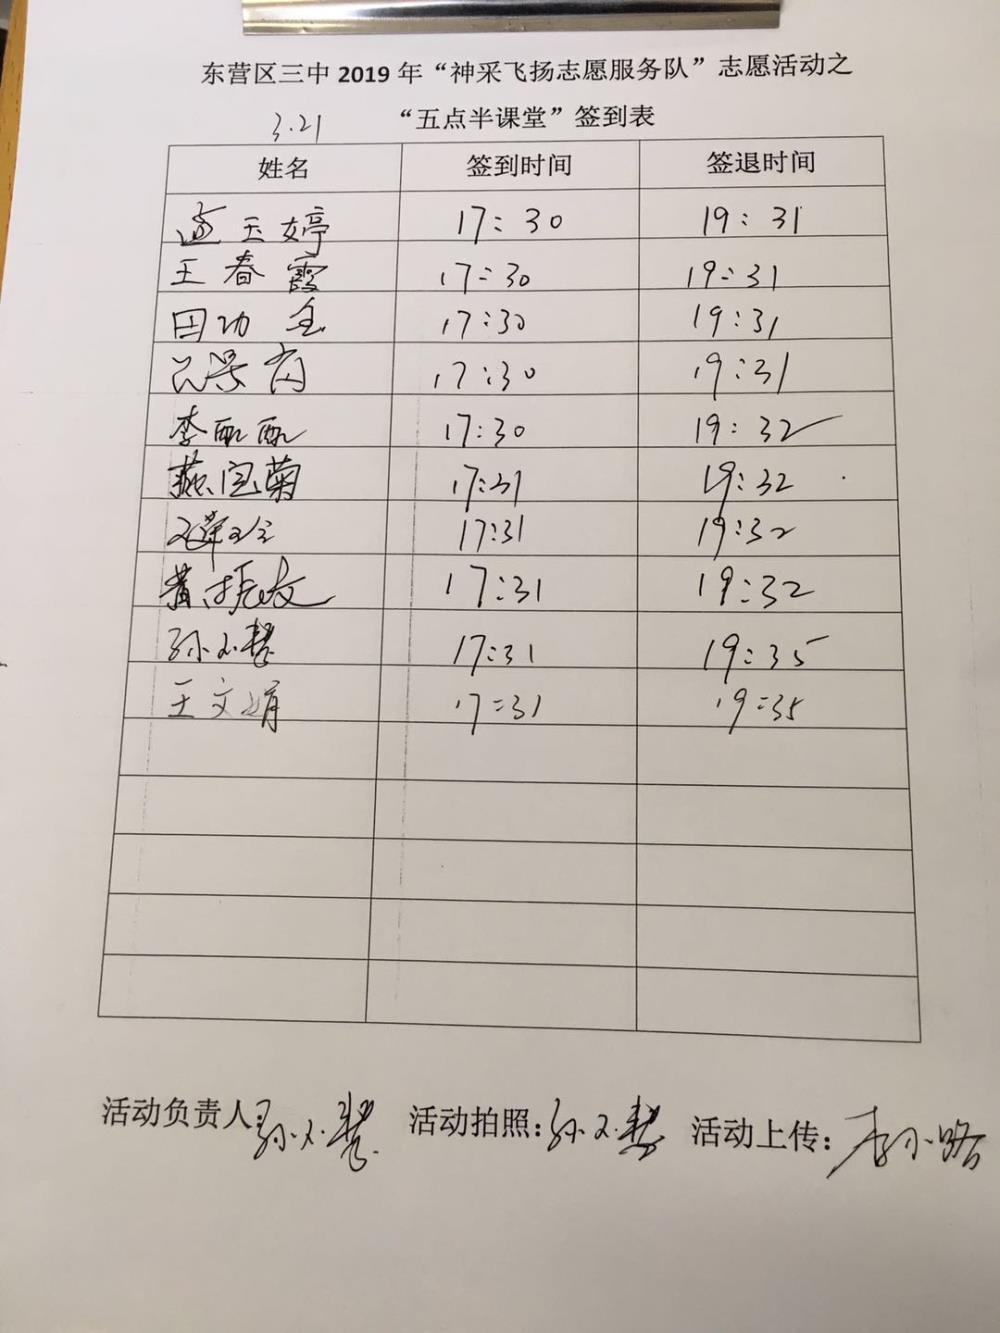 东营区三中 2019 年“神采飞扬志愿服务队”志愿活动之
3.21 “五点半课堂”签到表
姓名 签到时间 签退时间
玉婷 17:30 19:31
王春霞 17:30 19:31
田功 17:30 19:31
17:30 19:31
李 17:30 19:32
燕宝菊 17:31 19:32
17:31 19:32
黄振文 17:31 19:32
孙文慧 17:31 19:35
王文娟 17:31 19:35
活动负责人:孙文慧 活动拍照:孙文慧 活动上传:李小路